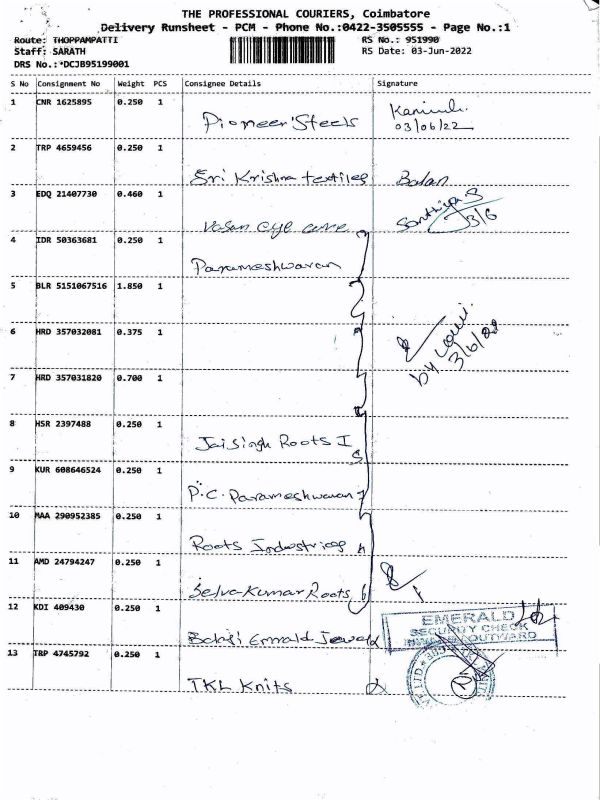 THE PROFESSIONAL COURIERS, Coimbatore
Delivery Runsheet - PCM - Phone No.:0422-3505555 - Page No.:1
Route: THOPPAMPATTI RS No.: 951990
Staff: SARATH RS Date: 03-Jun-2022
DRS No.:*DCJB95199001
S No Consignment No Weight PCS Consignee Details Signature
1 CNR 1625895 0.250 1 Pioneer Steels
03/06/22
2 TRP 4659456 0.250 1 Sri Krishna textiles Balan
3 EDQ 21407730 0.460 1 Vasan eye care Santhiya.S
3/6
4 IDR 50363681 0.250 1 Parameshwaran
5 BLR 5151067516 1.850 1
6 HRD 357032081 0.375 1 by
3/6/22
7 HRD 357031820 0.700 1
8 HSR 2397488 0.250 1 Jaisingh Roots I
9 KUR 608646524 0.250 1 P.C. Parameshwaran
10 MAA 290952385 0.250 1 Roots Industries
11 AMD 24794247 0.250 1 Selva Kumar Roots
12 KDI 409430 0.250 1 Balaji Emrald Jewel
EMERALD
SECURITY CHECK
INWARD/OUTWARD
13 TRP 4745792 0.250 1 TKL Knits